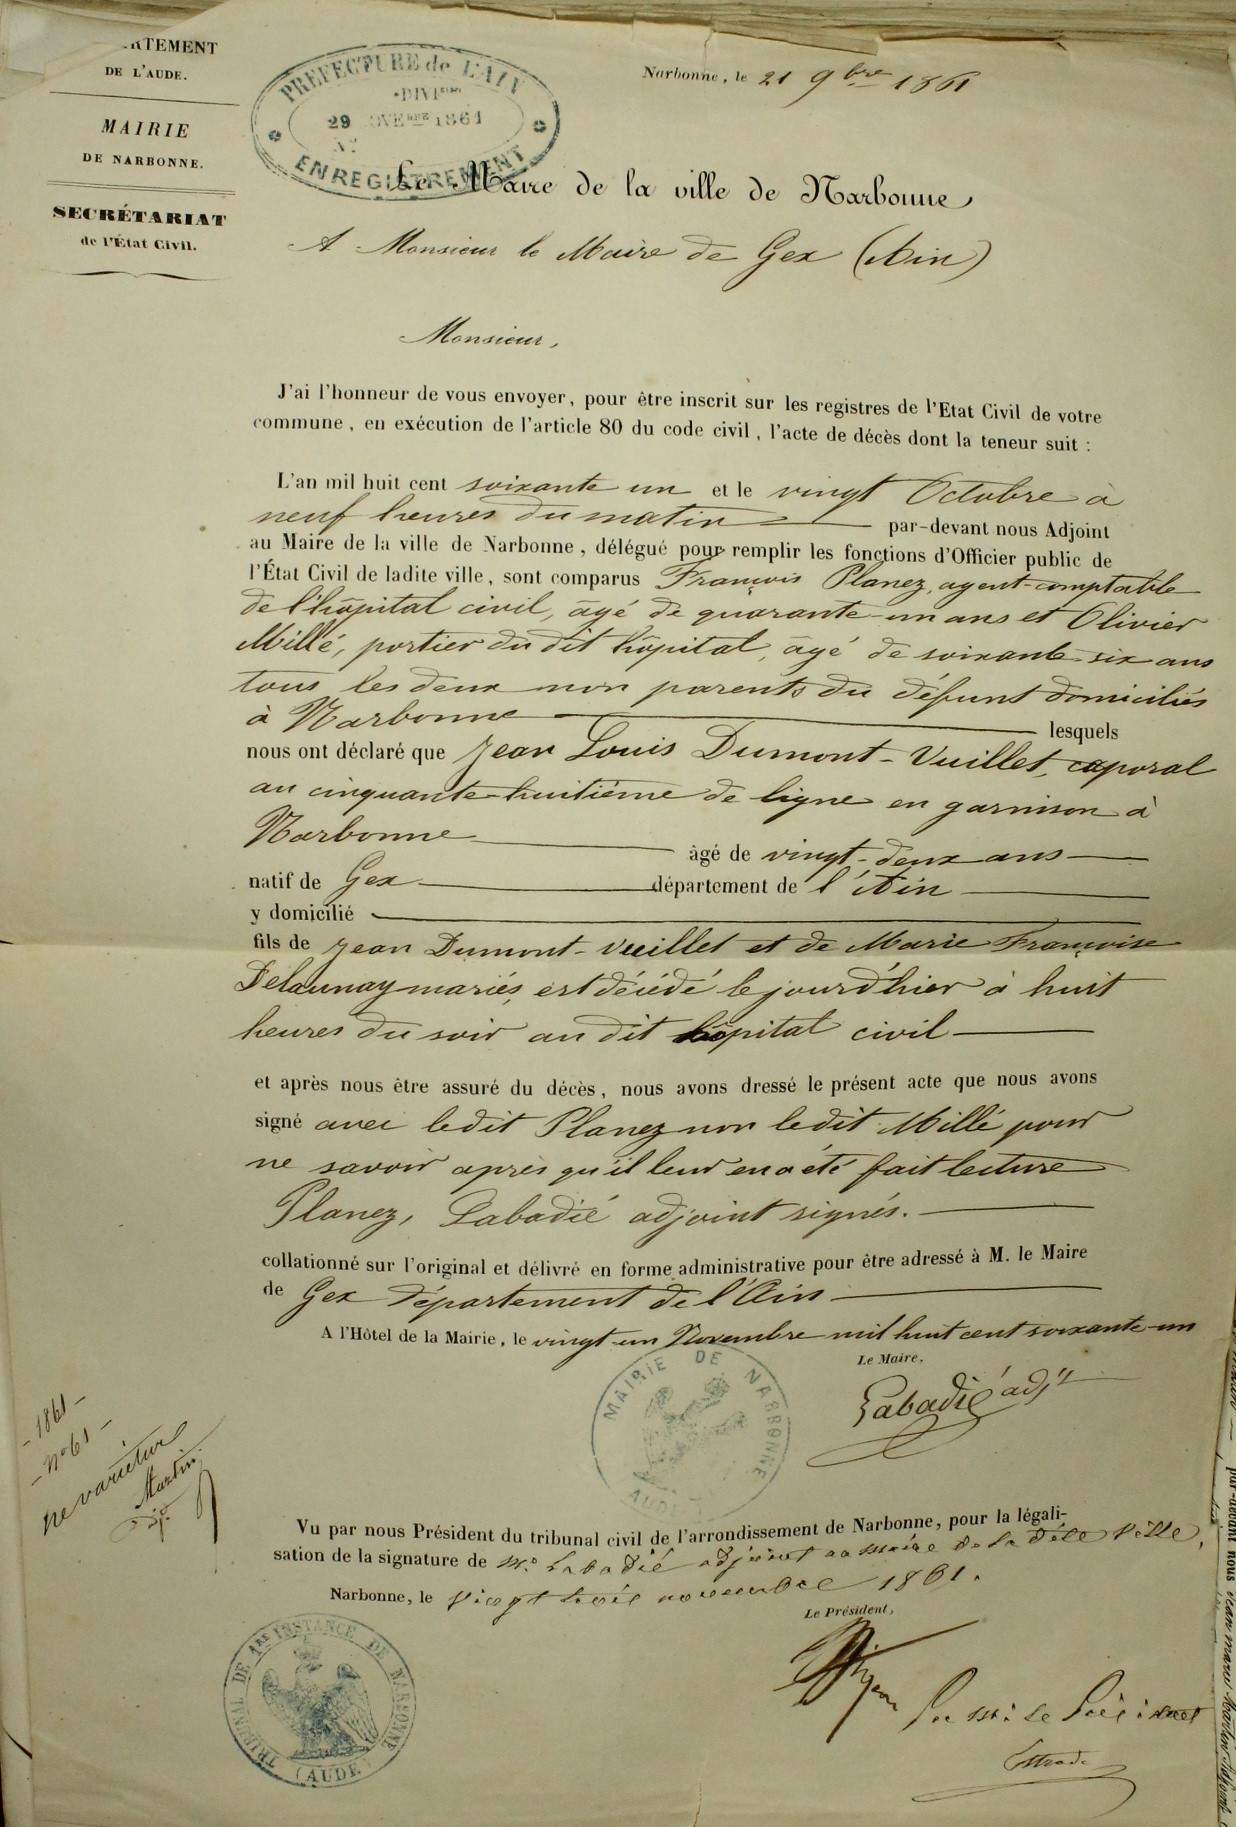 RTEMENT
DE L'AUDE.
MAIRIE
DE NARBONNE.
SECRÉTARIAT
de l'État Civil.
PREFECTURE de L'AIN
DIVI
29 NOVEbre 1861
N°
ENREGISTREMENT
Narbonne, le 21 9bre 1861
Le Maire de la ville de Narbonne
A Monsieur le Maire de Gex (Ain)
Monsieur,
J'ai l'honneur de vous envoyer, pour être inscrit sur les registres de l'Etat Civil de votre
commune, en exécution de l'article 80 du code civil, l'acte de décès dont la teneur suit :
L'an mil huit cent soixante un et le vingt Octobre à
neuf heures du matin par-devant nous Adjoint
au Maire de la ville de Narbonne, délégué pour remplir les fonctions d'Officier public de
l'État Civil de ladite ville, sont comparus François Planez, agent-comptable
de l'hôpital civil, âgé de quarante-un ans et Olivier
Millé, portier du dit hôpital, âgé de soixante-six ans
tous les deux non parents du défunt domiciliés
à Narbonne lesquels
nous ont déclaré que Jean Louis Dumont-Vuillet, caporal
au cinquante-huitième de ligne en garnison à
Narbonne âgé de vingt-deux ans
natif de Gex département de l'Ain
y domicilié
fils de Jean Dumont-Vuillet et de Marie Françoise
Delaunay mariés, est décédé le jour d'hier à huit
heures du soir au dit hôpital civil
et après nous être assuré du décès, nous avons dressé le présent acte que nous avons
signé avec ledit Planez non ledit Millé pour
ne savoir après qu'il leur en a été fait lecture
Planez, Labadié adjoint signés.
collationné sur l'original et délivré en forme administrative pour être adressé à M. le Maire
de Gex département de l'Ain
A l'Hôtel de la Mairie, le vingt-un Novembre mil huit cent soixante-un
Le Maire,
Labadié adjt
MAIRIE DE NARBONNE
AUDE
- 1861 -
- N° 61 -
ne varietur
Martin
Vu par nous Président du tribunal civil de l'arrondissement de Narbonne, pour la légali-
sation de la signature de Mr. Labadié adjoint au maire de la dite ville,
Narbonne, le vingt trois novembre 1861.
Le Président,
TRIBUNAL DE 1RE INSTANCE DE NARBONNE
(AUDE)
Estrade
par-devant nous